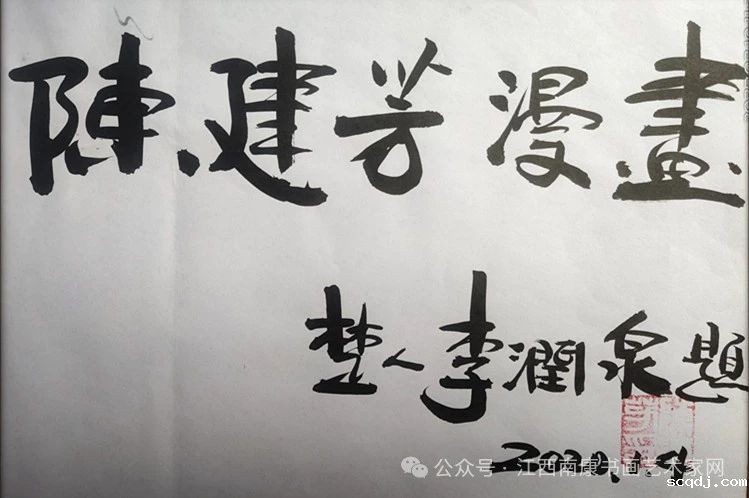 陳建芳漫畫
楚人李潤泉題
公众号·江西南康书画艺术家网
scqdj.com